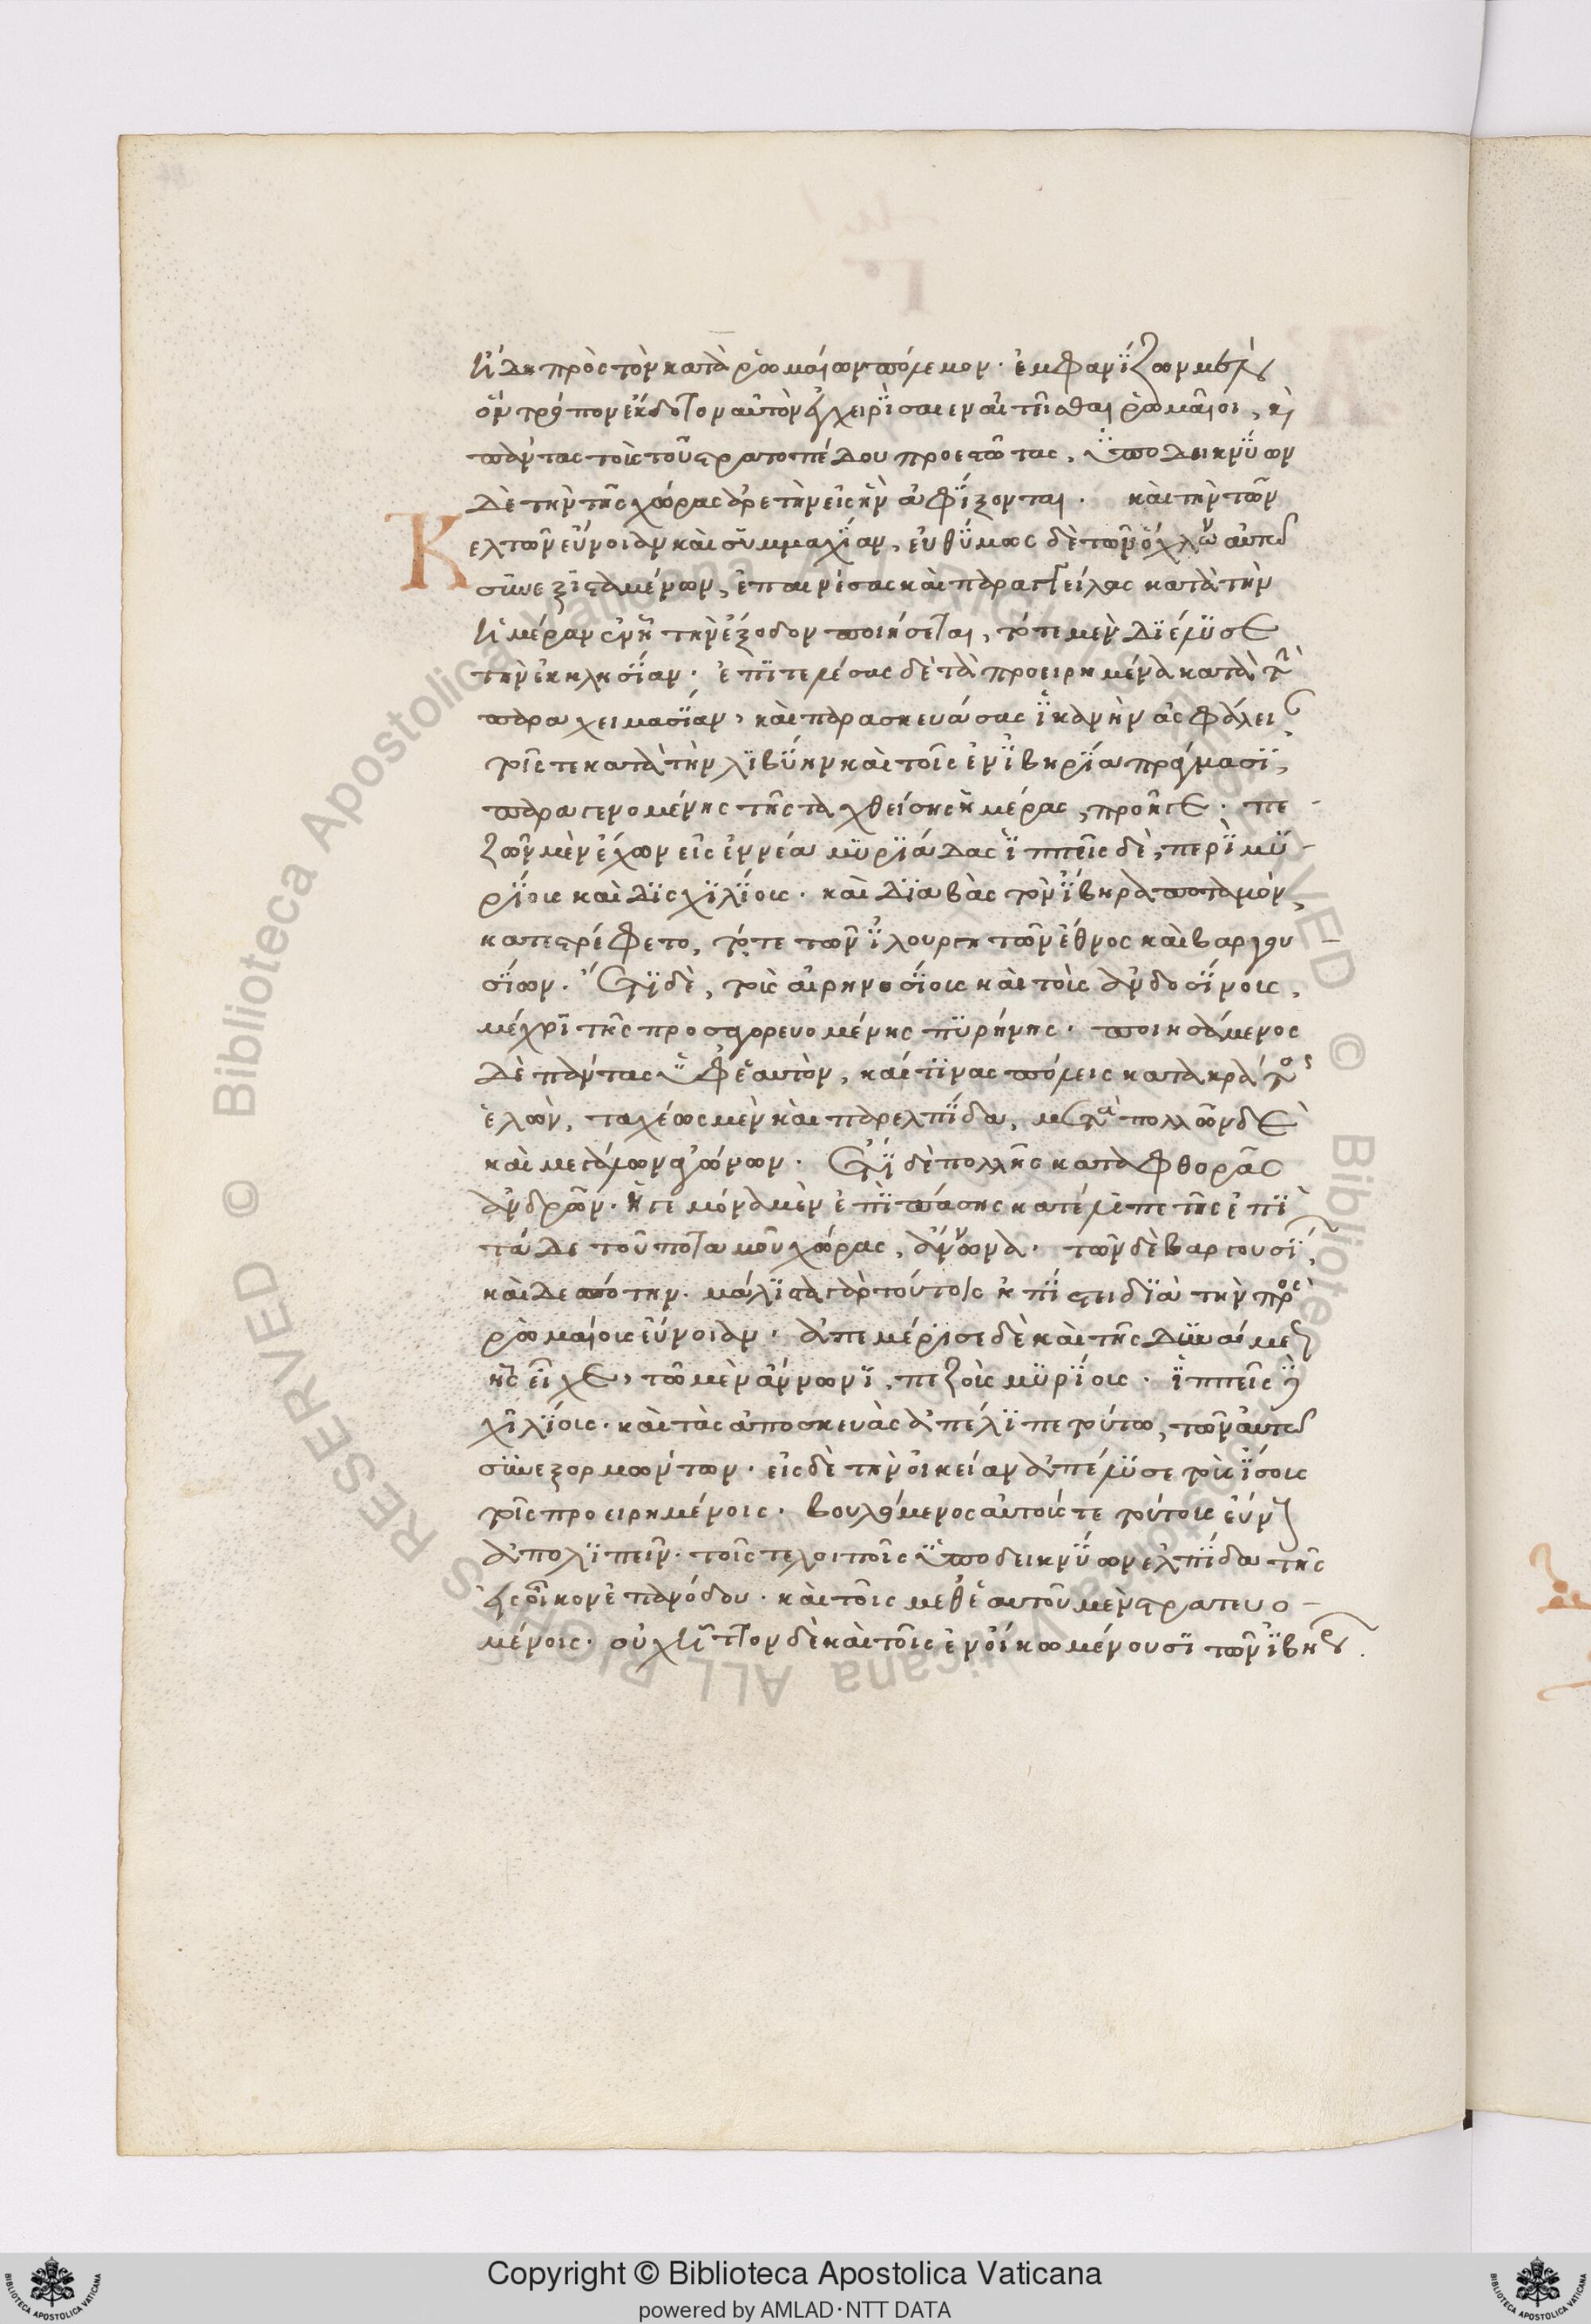 ἤδη πρὸς τὸν κατὰ ῥωμαίων πόλεμον· ἐμφανίζων μὲν
ὃν τρόπον ἔκδοτον αὐτὸν ἐγχειρίσαι ἐναιτεῖσθαι ῥωμαῖοι, καὶ
πάντας τοὺς τοῦ στρατοπέδου προεστῶτας, ὑποδεικνύων
δὲ τὴν τῆς χώρας ἀρετὴν εἰς ἣν ἀφίξονται. καὶ τὴν τῶν
Κελτῶν εὔνοιαν καὶ συμμαχίαν, εὐθύμως δὲ τῶν ὄχλων αὐτῶ
συνεξισταμένων, ἐπαινέσας καὶ παραγγείλας κατὰ τὴν
ἡμέραν ἐν ᾗ τὴν ἔξοδον ποιήσεται, τότε μὲν διέλυσε
τὴν ἐκκλησίαν· ἐπιτελέσας δὲ τὰ προειρημένα κατὰ τὴν
παραχειμασίαν, καὶ παρασκευάσας ἱκανὴν ἀσφάλειαν
τοῖς τε κατὰ τὴν λιβύην καὶ τοῖς ἐν ἰβηρία πράγμασι,
παραγενομένης τῆς ταχθείσης ἡμέρας, προῆγε· πε-
ζῶν μὲν ἔχων εἰς ἐννέα μυριάδας ἱππεῖς δὲ, περὶ μυ-
ρίοις καὶ δισχιλίοις· καὶ διαβὰς τὸν ἴβηρα ποταμὸν,
κατεστρέφετο, τό, τε τῶν ἰλουργητῶν ἔθνος καὶ βαργου-
σίων. ἔτι δὲ, τοὺς αἰρηνοσίοις καὶ τοὺς ἀνδοσίνοις,
μέχρι τῆς προσαγορευομένης πυρήνης· ποιησάμενος
δὲ πάντας ὑφ' ἑαυτὸν, καί τινας πόλεις κατὰ κράτος
ἑλὼν, ταχέως μὲν καὶ παρ' ἐλπίδα, μετὰ πολλῶν δὲ
καὶ μεγάλων ἀγώνων· ἔτι δὲ πολλῆς καταφθορᾶς
ἀνδρῶν· ἡγεμόνα μὲν ἐπὶ πάσης κατέλιπε τῆς ἐπι
τάδε τοῦ ποταμοῦ χώρας, ἄννωνα· τῶν δὲ βαργουσίων,
καὶ δεσπότην· μάλιστα γὰρ τούτοις ἠπίστει διὰ τὴν πρὸς
ῥωμαίοις εὔνοιαν· ἀπεμέρισε δὲ καὶ τῆς δυνάμεως
ἧς εἶχε, τῶ μὲν ἄννωνι, πεζοὺς μυρίοις· ἱππεῖς δὲ
χιλίοις· καὶ τὰς ἀποσκευὰς ἀπέλιπε τούτω, τῶν αὐτῶ
συνεξορμώντων· εἰς δὲ τὴν οἰκείαν ἀπέλυσε τοὺς ἴσοις
τοῖς προειρημένοις· βουλόμενος αὐτούς τε τούτοις εὔνους
ἀπολιπεῖν· τοῖς τε λοιποῖς ὑποδεικνύων ἐλπίδα τῆς
ἐς οἶκον ἐπανόδου· καὶ τοῖς μεθ' ἑαυτοῦ μὲν στρατευο-
μένοις· οὐχ ἧττον δὲ καὶ τοῖς ἐν οἴκω μένουσι τῶν ἰβήρων.